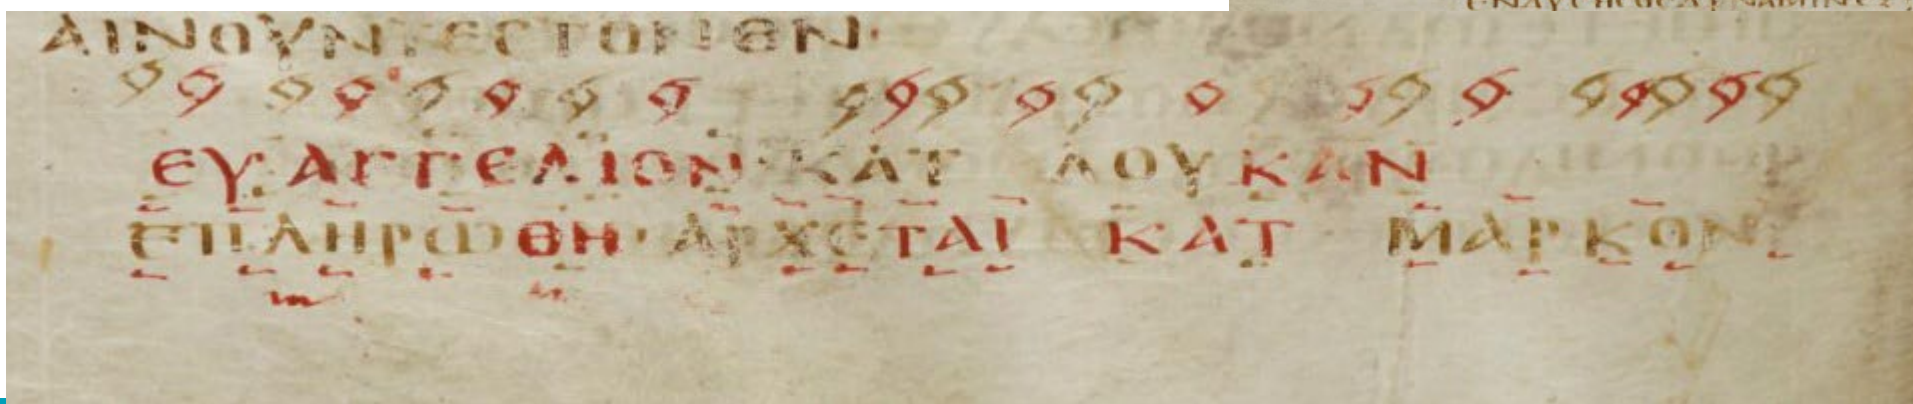 ΑΙΝΟΥΝΤΕϹΤΟΝΘΝ·
ΕΥΑΓΓΕΛΙΟΝ·ΚΑΤ ΛΟΥΚΑΝ
ΕΠΛΗΡΩΘΗ· ΑΡΧΕΤΑΙ ΚΑΤ ΜΑΡΚΟΝ